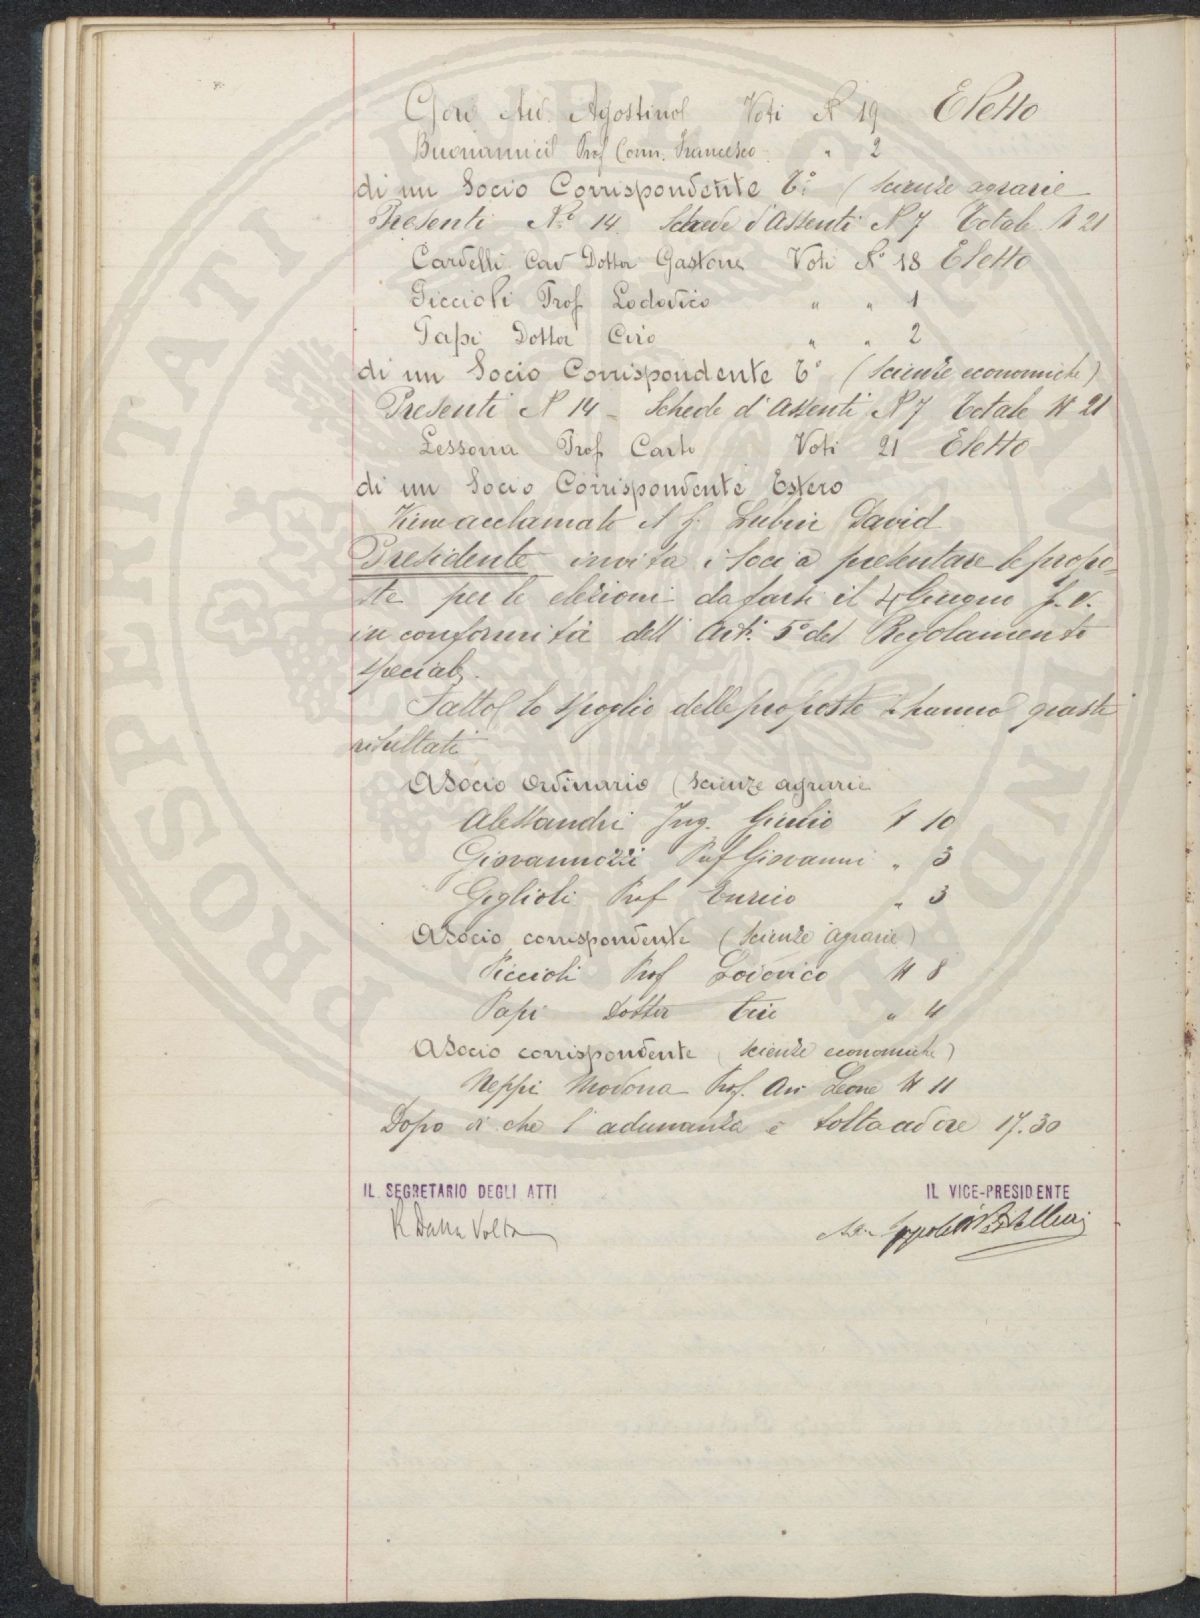 Gori Avv. Agostino Voti N 19 Eletto
Buonamici Prof Comm. Francesco " 2
di un Socio Corrispondente T.° (scienze agrarie
Presenti N.° 14. Schede d'Assenti N 7 Totale N 21
Cardelli Cav Dottor Gastone Voti N° 18 Eletto
Piccioli Prof Lodovico " " 1
Papi Dottor Ciro " " 2
di un Socio Corrispondente T° (scienze economiche)
Presenti N 14 - Schede d'Assenti N 7 Totale N 21
Lessona Prof Carlo Voti 21 Eletto
di un Socio Corrispondente Estero
Viene acclamato il S. Lubin David
Presidente invita i Soci a presentare le propo-
ste per le elezioni da farsi il 4 Giugno p. v.
in conformità dell'Art. 5° del Regolamento
speciale.
Fatto lo spoglio delle proposte si hanno questi
risultati
A Socio Ordinario (scienze agrarie
Alessandri Ing. Giulio N 10
Giovannozzi Prof Giovanni " 3
Giglioli Prof Enrico " 3
A Socio corrispondente (scienze agrarie)
Piccioli Prof Lodovico N 8
Papi Dottor Ciro " 4
A Socio corrispondente (scienze economiche)
Neppi Modona Prof. Avv Leone N 11
Dopo di che l'adunanza è tolta ad ore 17.30
IL SEGRETARIO DEGLI ATTI IL VICE-PRESIDENTE
R Dalla Volta
PROSPERITATI PVBLICAE AVGENDAE